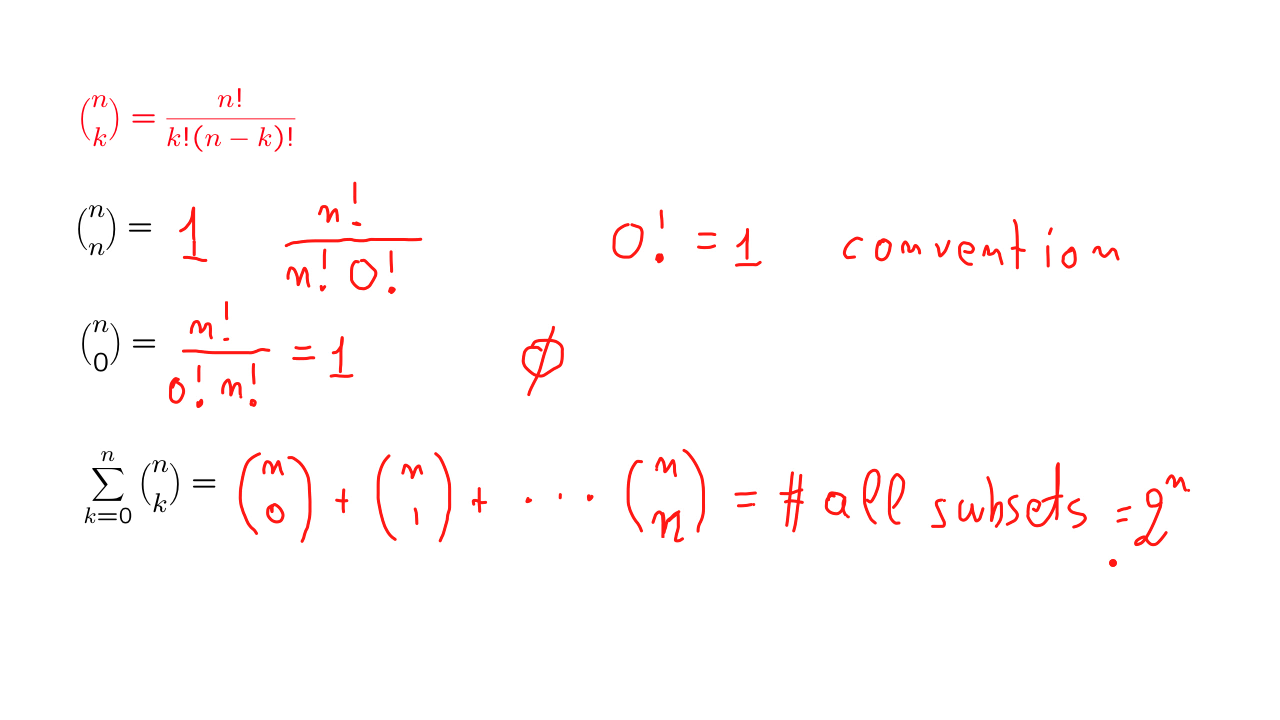 $\binom{n}{k} = \frac{n!}{k!(n-k)!}$
$\binom{n}{n} =$ 1 $\frac{n!}{n! \, 0!}$ $0! = 1$ convention
$\binom{n}{0} = \frac{n!}{0! \, n!} = 1$ $\emptyset$
$\sum_{k=0}^{n} \binom{n}{k} = \binom{n}{0} + \binom{n}{1} + \cdots \binom{n}{n} = \#$ all subsets $= 2^n$